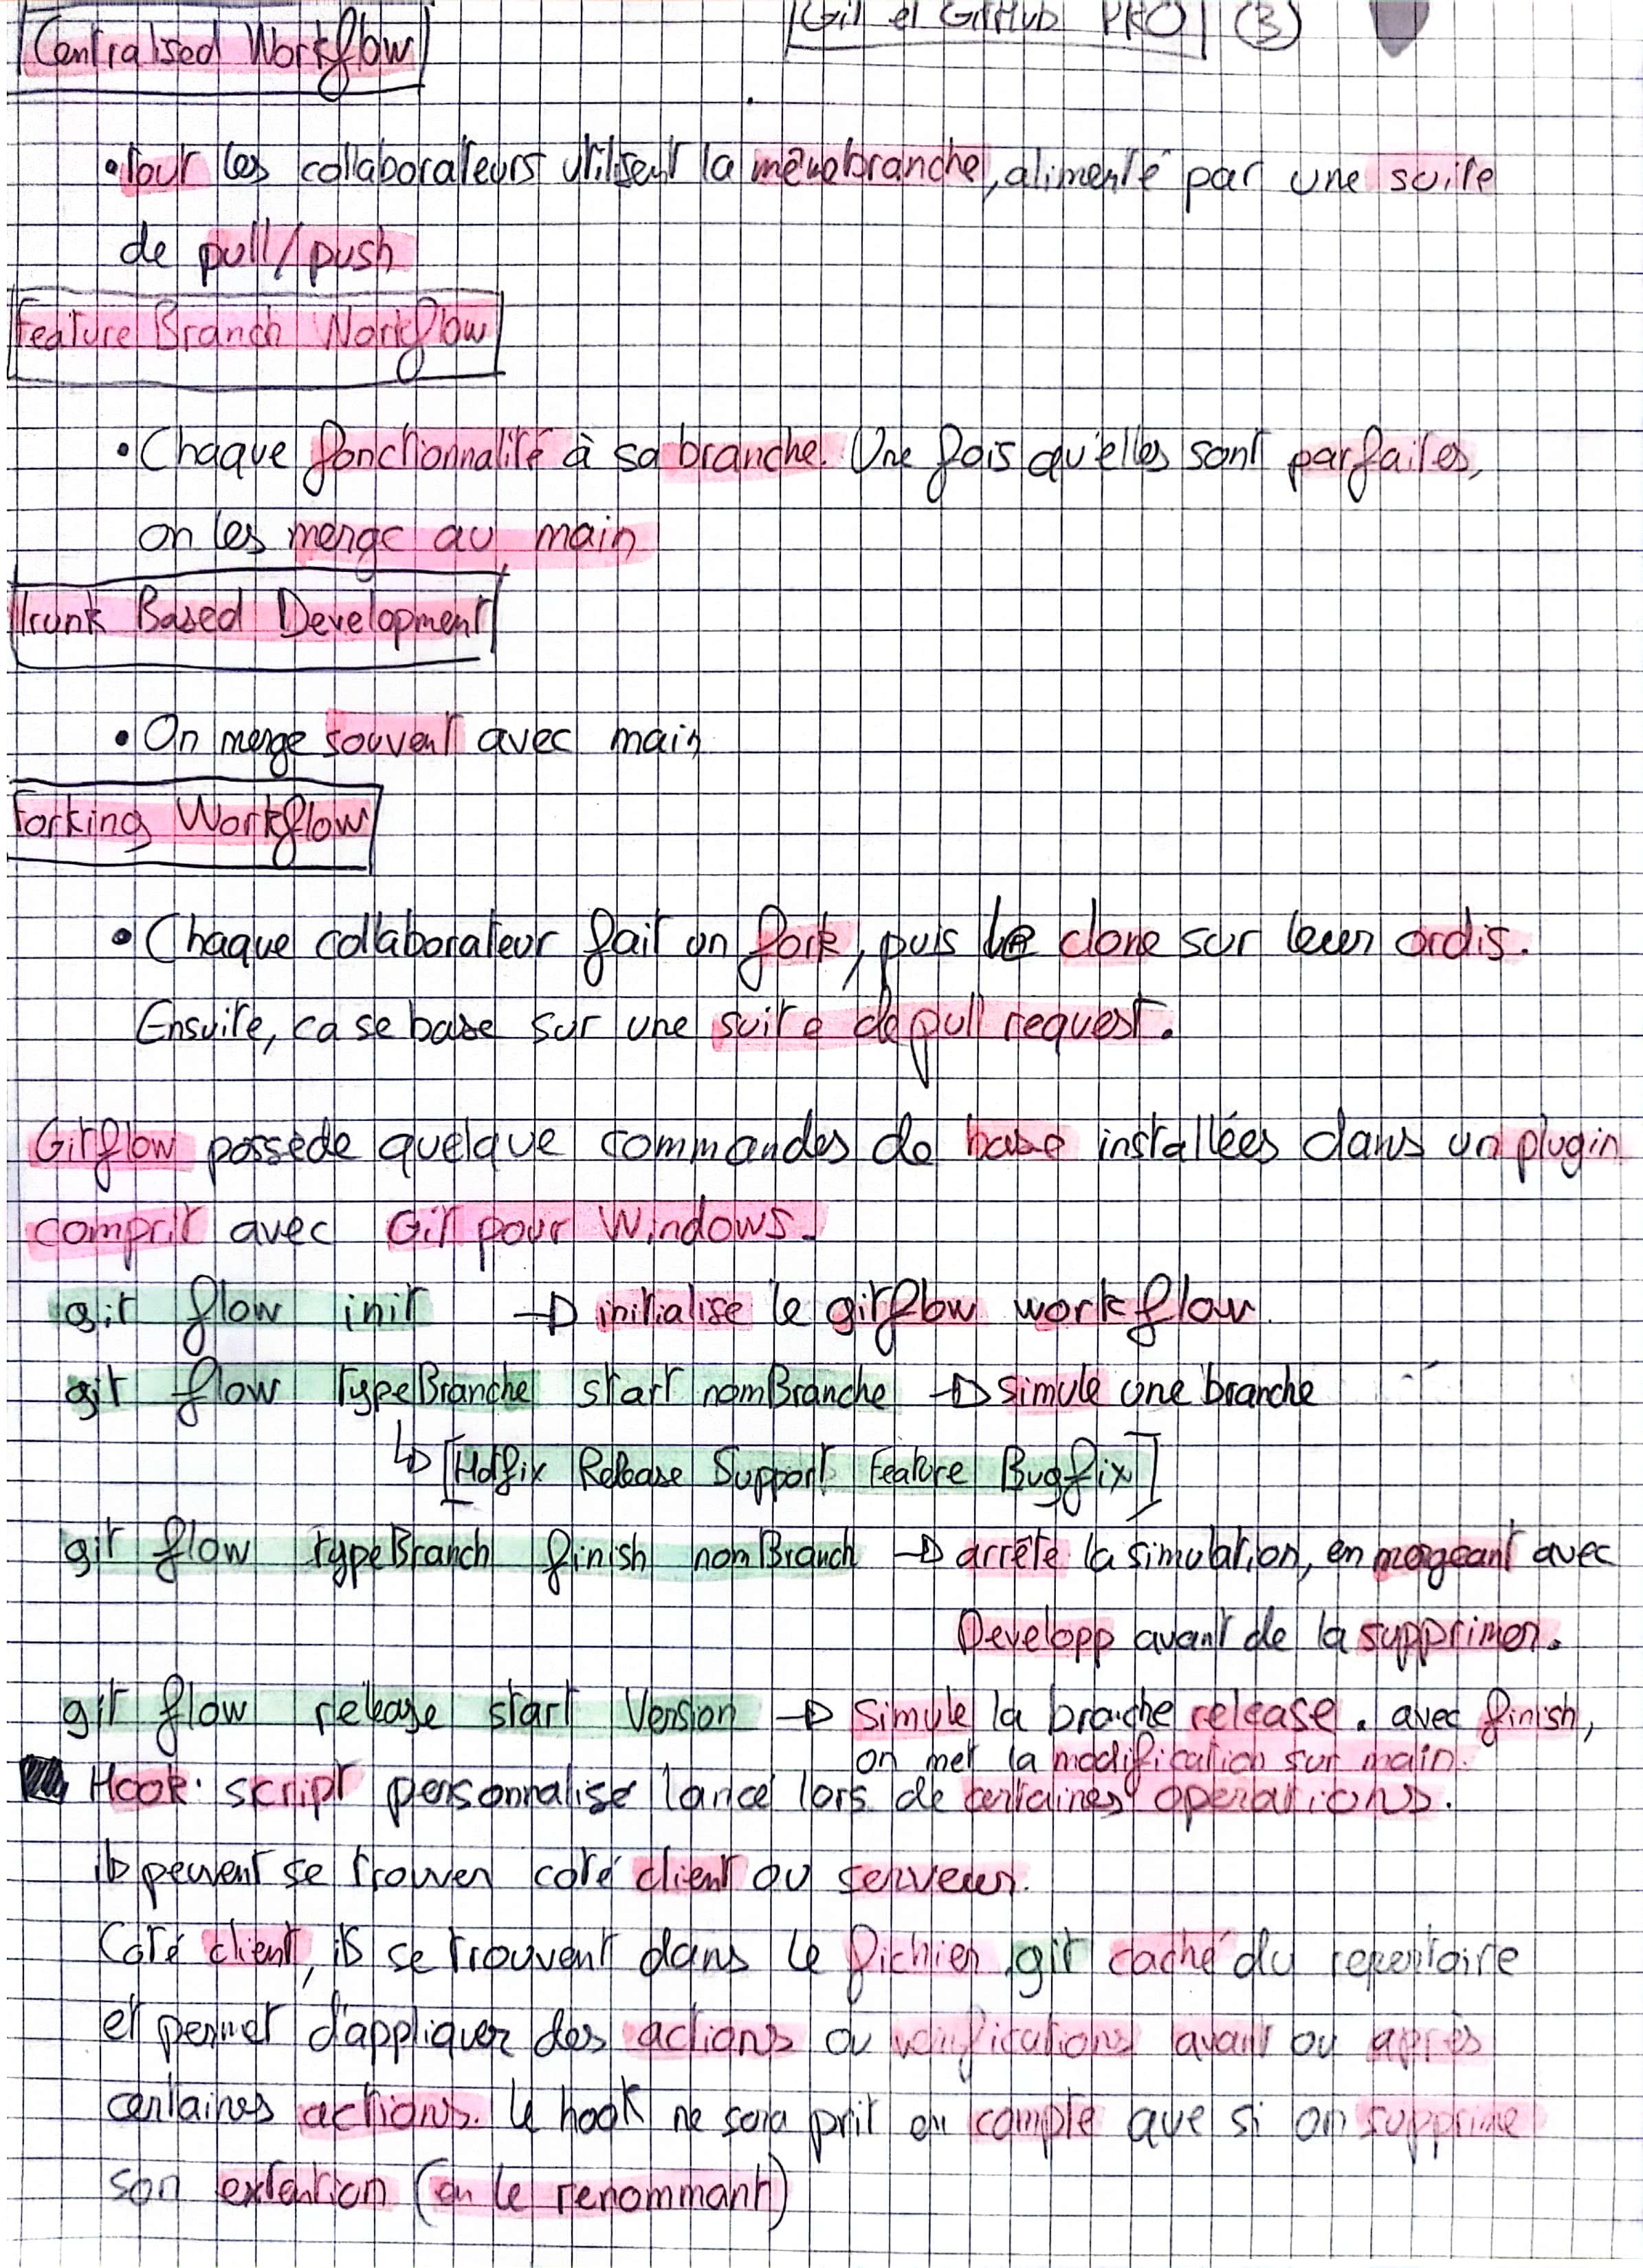 Git et GitHub PRO (3)
Centralised Workflow
• Tour les collaborateurs utilisent la même branche, alimenté par une suite
de pull/push
Feature Branch Workflow
• Chaque fonctionnalité à sa branche. Une fois qu'elles sont parfaites,
on les merge au main
Trunk Based Development
• On merge souvent avec main
Forking Workflow
• Chaque collaborateur fait un fork, puis le clone sur leur ordis.
Ensuite, ca se base sur une suite de pull request.
Gitflow possède quelque commandes de base installées dans un plugin
comprit avec Git pour Windows.
git flow init → initialise le gitflow workflow.
git flow typeBranche start nomBranche → simule une branche
↳ [Hotfix Release Support Feature Bugfix]
git flow typeBranch finish nomBranch → arrête la simulation, en mergeant avec
Developp avant de la supprimer.
git flow release start Version → Simule la branche release. avec finish,
on met la modification sur main.
Hook: script personnalisé lancé lors de certaines operations.
ils peuvent se trouver coté client ou serveur.
Coté client, ils se trouvent dans le fichier .git caché du repertoire
et permet d'appliquer des actions ou vérifications avant ou après
certaines actions. Le hook ne sera prit en compte que si on supprime
son extention (en le renommant)